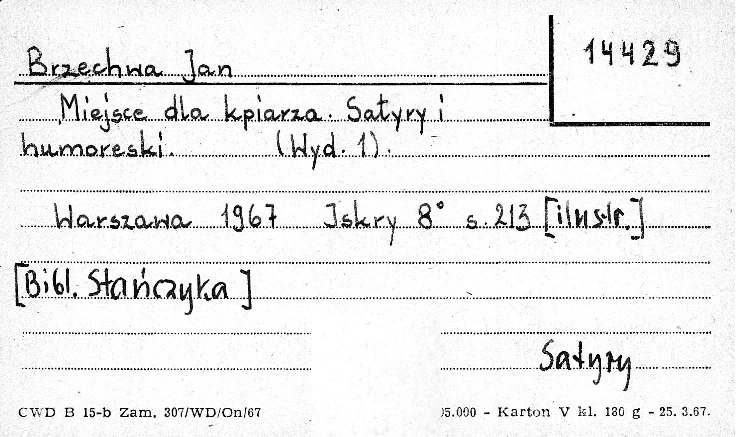 14429
Brzechwa Jan
Miejsce dla kpiarza. Satyry i
humoreski. (Wyd. 1).
Warszawa 1967 Iskry 8° s. 213 [ilustr.]
[Bibl. Stańczyka]
Satyry
CWD B 15-b Zam. 307/WD/On/67 05.000 - Karton V kl. 180 g - 25. 3.67.